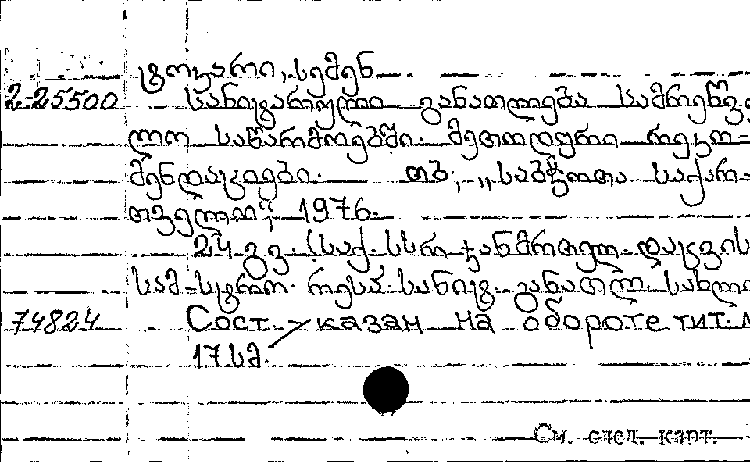 გოცარი, სემენ
2-25500 სანიტარიული განათლება სამრეწვე
ლო საწარმოებში. მეთოდური რეკო-
მენდაციები. თბ., „საბჭოთა საქარ-
თველო", 1976.
24 გვ. (საქ. სსრ ჯანმრთელ. დაცვის
სამ-სტრო. რესპ. სანიტ. განათლ. სახლი
74824 Сост. указан на обороте тит. л
17 სმ.
См. след. карт.